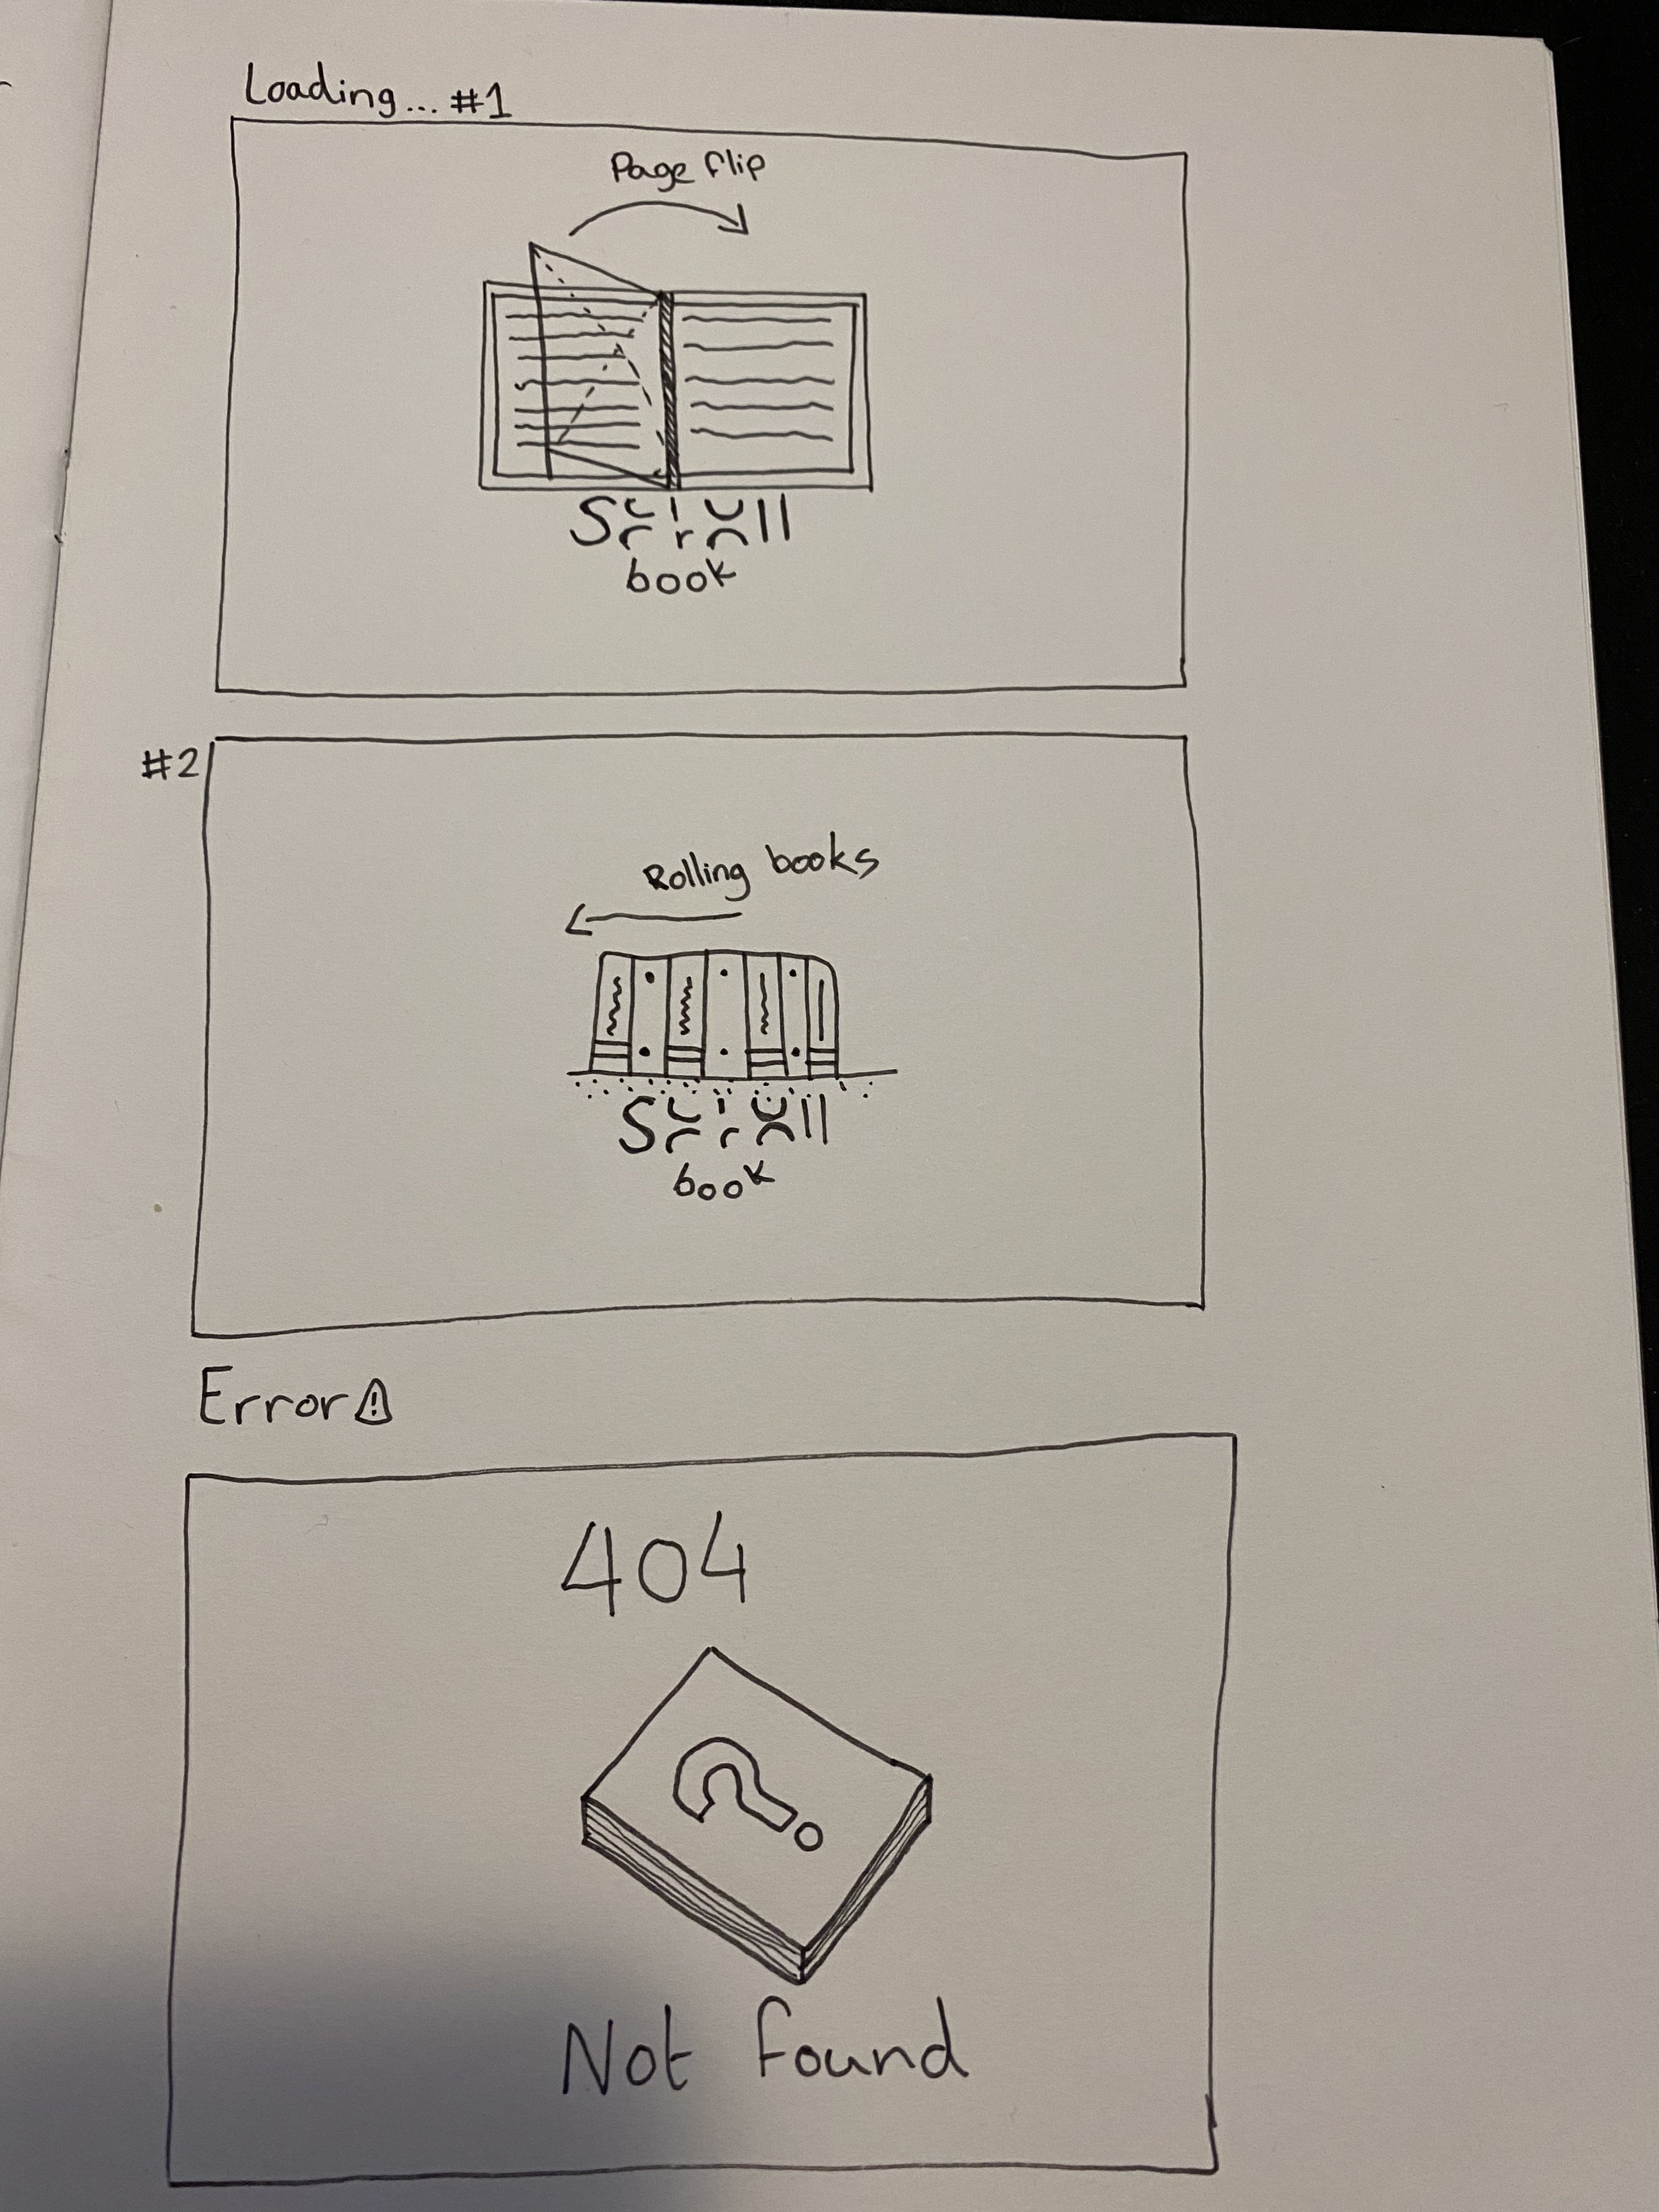 Loading... #1
Page flip
book
#2
Rolling books
book
Error
404
?
Not found